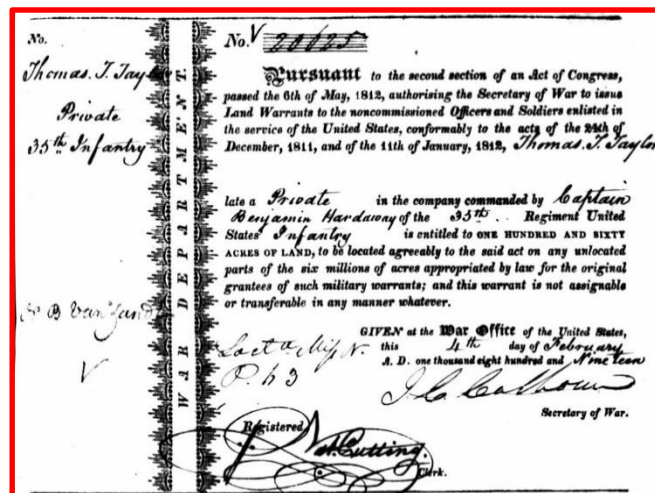 No.
Thomas. T. Taylor
Private
35th Infantry
N B Van Zandt
V
WAR DEPARTMENT.
No. V 20625
Pursuant to the second section of an Act of Congress,
passed the 6th of May, 1812, authorising the Secretary of War to issue
Land Warrants to the noncommissioned Officers and Soldiers enlisted in
the service of the United States, conformably to the acts of the 24th of
December, 1811, and of the 11th of January, 1812, Thomas. T. Taylor
late a Private in the company commanded by Captain
Benjamin Hardaway of the 35th Regiment United
States' Infantry is entitled to ONE HUNDRED AND SIXTY
ACRES OF LAND, to be located agreeably to the said act on any unlocated
parts of the six millions of acres appropriated by law for the original
grantees of such military warrants; and this warrant is not assignable
or transferable in any manner whatever.
GIVEN at the War Office of the United States,
this 4th day of February
A. D. one thousand eight hundred and Nineteen
J C Calhoun
Secretary of War.
Registered
Cutting.
Clerk.